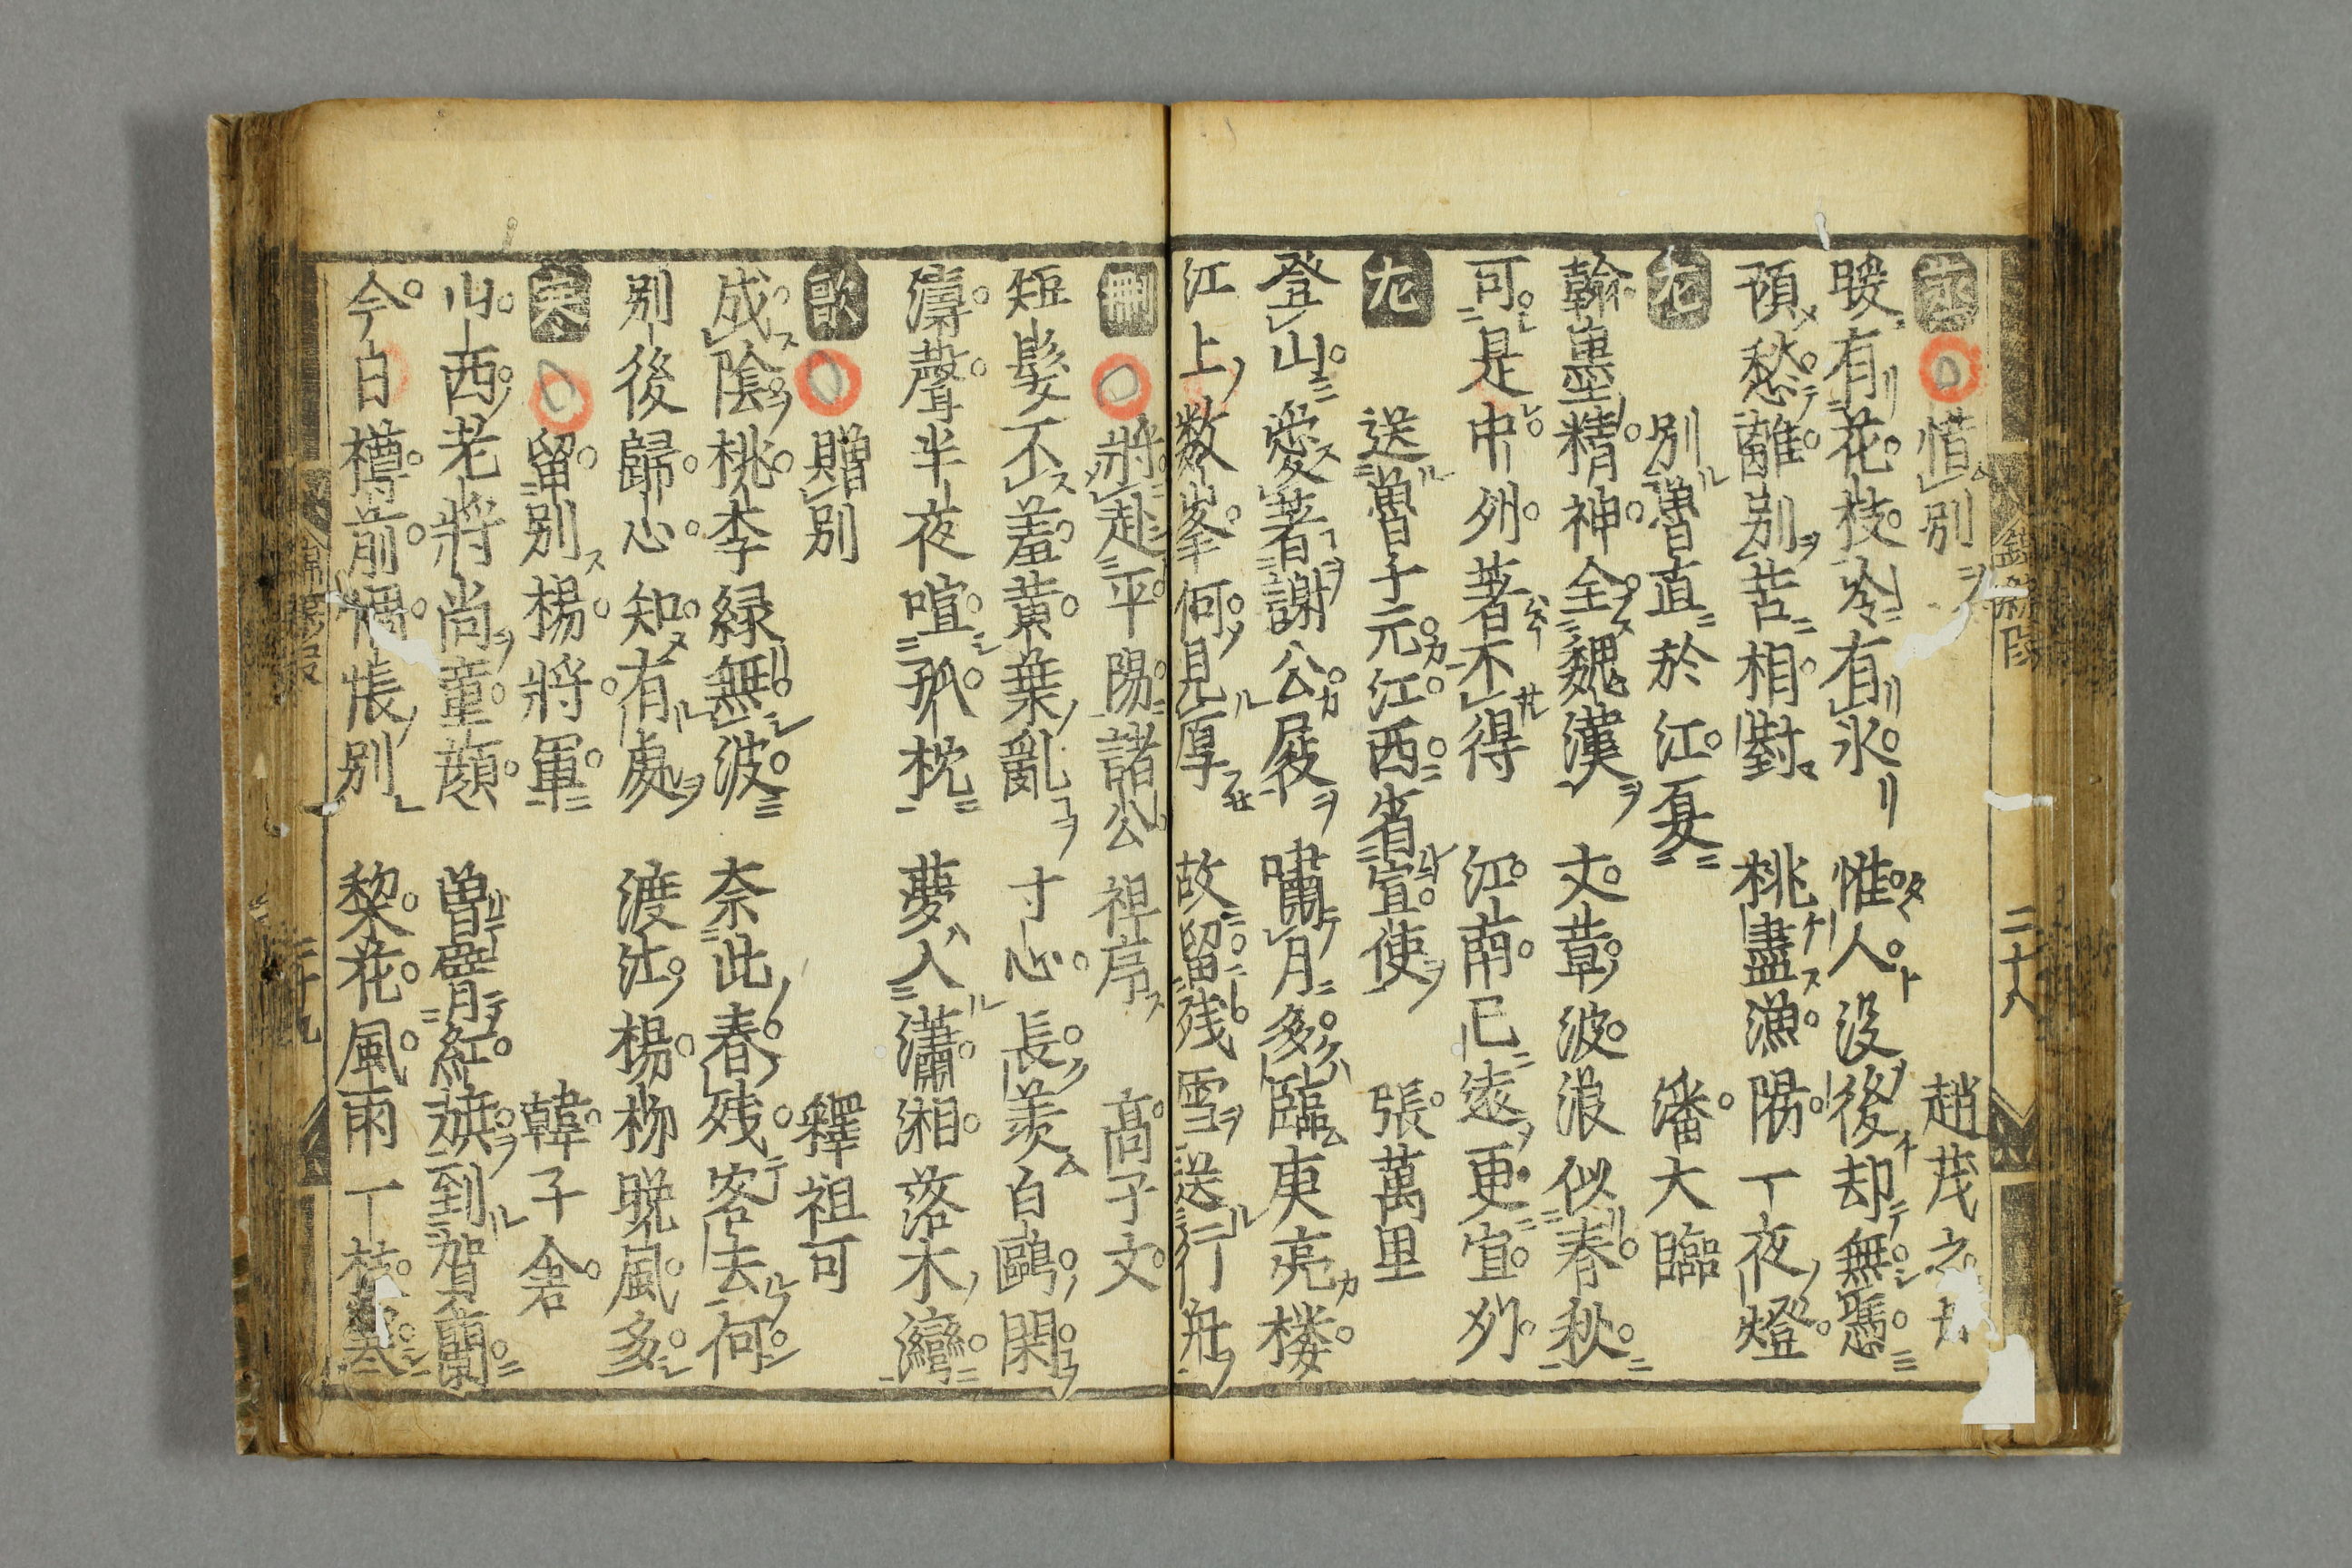 蒸 惜別 趙茂之
暖有花枝冷有氷 惟人没後却無憑
預愁離別苦相對 挑盡漁陽一夜燈
尤 別曽直於江夏 潘大臨
翰墨精神全魏漢 文章波浪似春秋
可是中州著不得 江南已遠更宜州
尤 送曽子元江西省宣使 張萬里
登山愛著謝公屐 嘯月多臨庾亮楼
江上数峯何見厚 故留残雪送行舟
刪 將赴平陽諸公禅席 高子文
短髮不羞黄葉亂 寸心長羨白鷗閑
濤聲半夜喧孤枕 夢入瀟湘落木灣
歌 贈別 釋祖可
成陰桃李緑無波 奈此春残客去何
別後歸心知有處 渡江楊柳晩風多
寒 留別楊將軍 韓子倉
山西老將尚童顔 曽臂紅旗到賀蘭
今日樽前惆悵別 黎花風雨一枝寒
二十八
二十九